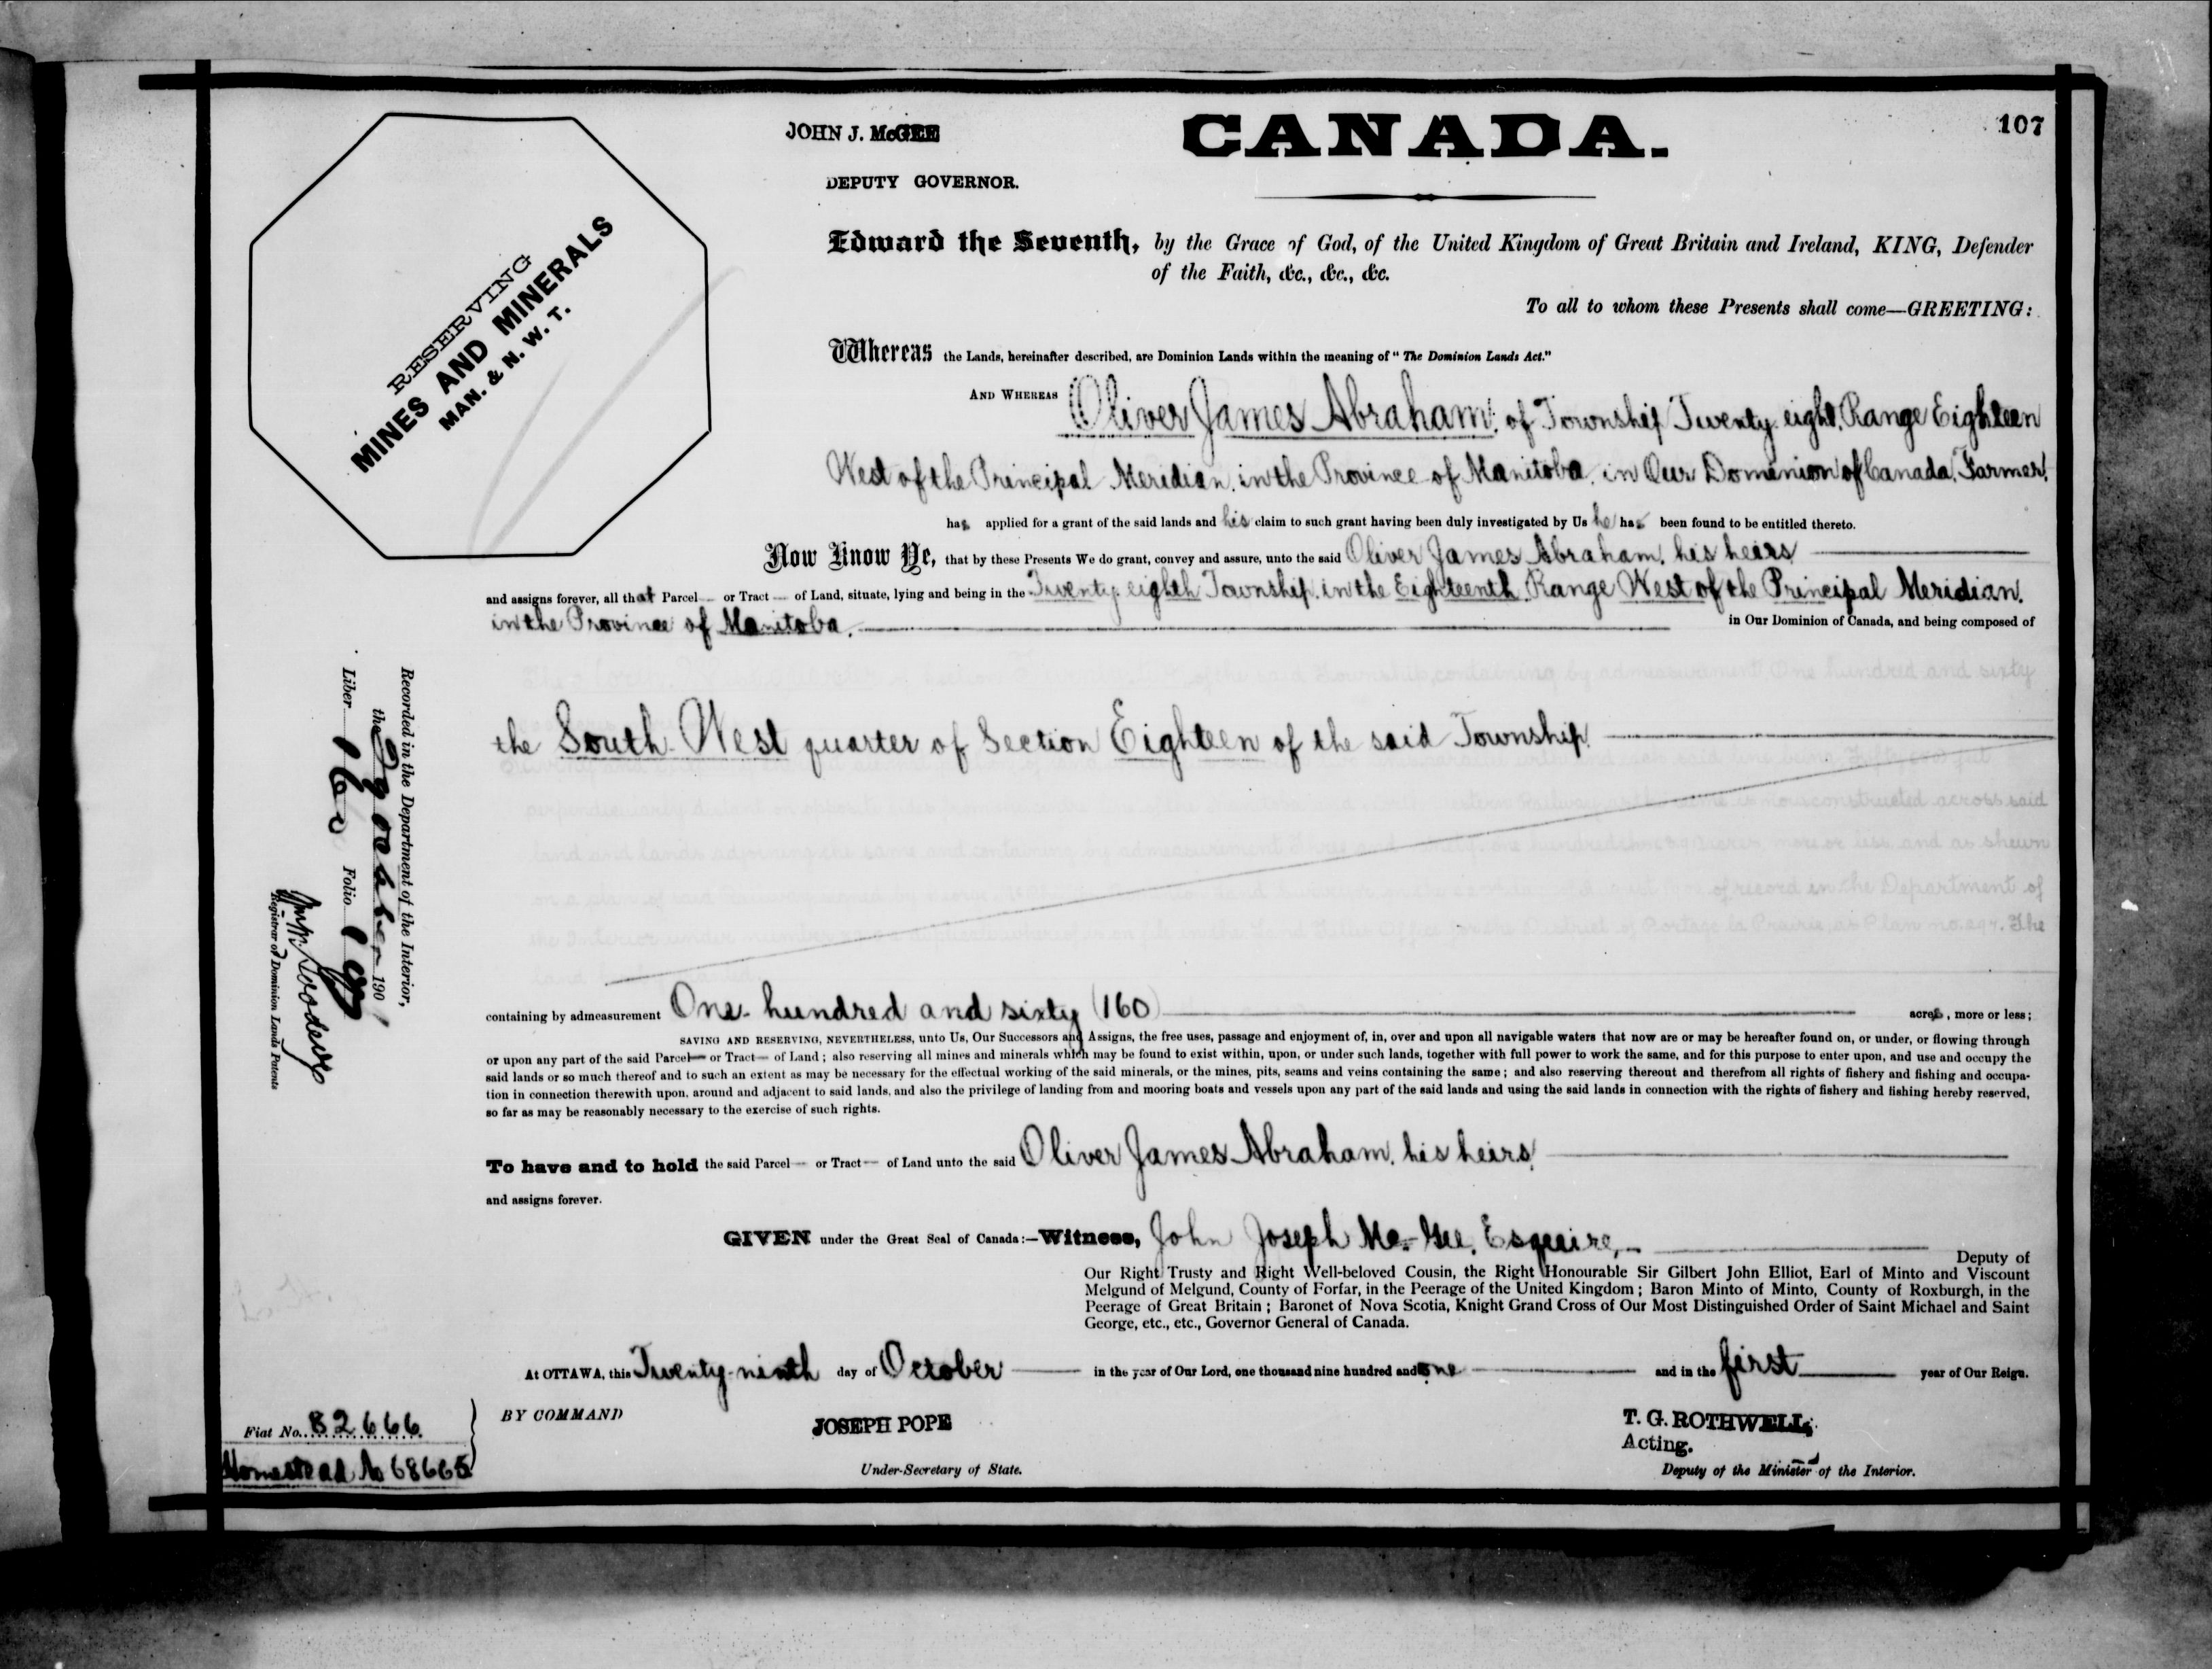 107
JOHN J. McGEE
CANADA.
DEPUTY GOVERNOR.
RESERVING
MINES AND MINERALS
MAN. & N. W. T.
Edward the Seventh, by the Grace of God, of the United Kingdom of Great Britain and Ireland, KING, Defender
of the Faith, &c., &c., &c.
To all to whom these Presents shall come—GREETING:
Whereas the Lands, hereinafter described, are Dominion Lands within the meaning of "The Dominion Lands Act."
AND WHEREAS Oliver James Abraham, of Township Twenty eight, Range Eighteen
West of the Principal Meridian, in the Province of Manitoba, in Our Dominion of Canada, Farmer,
has applied for a grant of the said lands and his claim to such grant having been duly investigated by Us he has been found to be entitled thereto.
Now Know Ye, that by these Presents We do grant, convey and assure, unto the said Oliver James Abraham, his heirs
and assigns forever, all that Parcel or Tract of Land, situate, lying and being in the Twenty eighth Township, in the Eighteenth Range West of the Principal Meridian,
in the Province of Manitoba, in Our Dominion of Canada, and being composed of
the South West quarter of Section Eighteen of the said Township
containing by admeasurement One hundred and sixty (160) acres, more or less;
SAVING AND RESERVING, NEVERTHELESS, unto Us, Our Successors and Assigns, the free uses, passage and enjoyment of, in, over and upon all navigable waters that now are or may be hereafter found on, or under, or flowing through
or upon any part of the said Parcel or Tract of Land; also reserving all mines and minerals which may be found to exist within, upon, or under such lands, together with full power to work the same, and for this purpose to enter upon, and use and occupy the
said lands or so much thereof and to such an extent as may be necessary for the effectual working of the said minerals, or the mines, pits, seams and veins containing the same; and also reserving thereout and therefrom all rights of fishery and fishing and occupa-
tion in connection therewith upon, around and adjacent to said lands, and also the privilege of landing from and mooring boats and vessels upon any part of the said lands and using the said lands in connection with the rights of fishery and fishing hereby reserved,
so far as may be reasonably necessary to the exercise of such rights.
To have and to hold the said Parcel or Tract of Land unto the said Oliver James Abraham, his heirs
and assigns forever.
GIVEN under the Great Seal of Canada:—Witness, John Joseph McGee, Esquire,
Deputy of
Our Right Trusty and Right Well-beloved Cousin, the Right Honourable Sir Gilbert John Elliot, Earl of Minto and Viscount
Melgund of Melgund, County of Forfar, in the Peerage of the United Kingdom; Baron Minto of Minto, County of Roxburgh, in the
Peerage of Great Britain; Baronet of Nova Scotia, Knight Grand Cross of Our Most Distinguished Order of Saint Michael and Saint
George, etc., etc., Governor General of Canada.
At OTTAWA, this Twenty-ninth day of October in the year of Our Lord, one thousand nine hundred and one and in the first year of Our Reign.
BY COMMAND
JOSEPH POPE
Under-Secretary of State.
T. G. ROTHWELL,
Acting.
Deputy of the Minister of the Interior.
Fiat No. 82666
Homestead No 68665
Recorded in the Department of the Interior,
the 29 October 1901
Liber 160 Folio 107
Registrar of Dominion Lands Patents